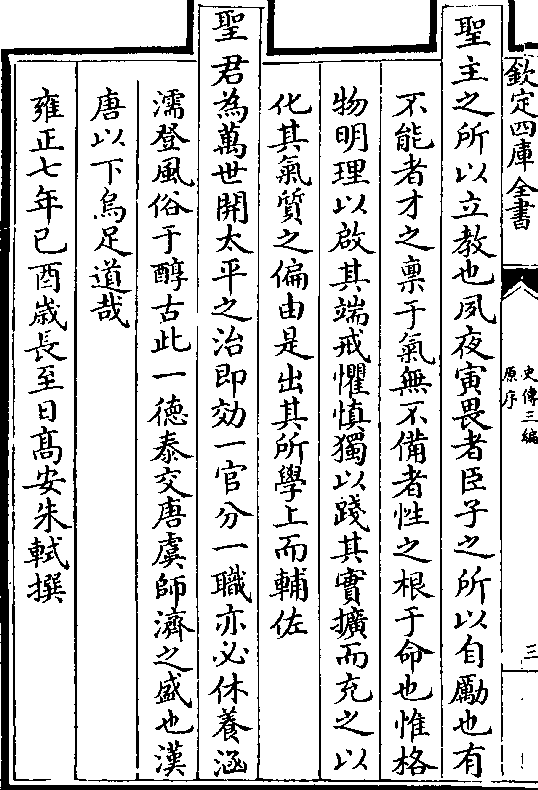 欽定四庫全書
史傳三編
原序
三
聖主之所以立教也夙夜寅畏者臣子之所以自勵也有
不能者才之稟于氣無不備者性之根于命也惟格
物明理以啟其端戒懼慎獨以踐其實擴而充之以
化其氣質之偏由是出其所學上而輔佐
聖君為萬世開太平之治即効一官分一職亦必休養涵
濡登風俗于醇古此一德泰交唐虞師濟之盛也漢
唐以下烏足道哉
雍正七年己酉嵗長至日髙安朱軾撰